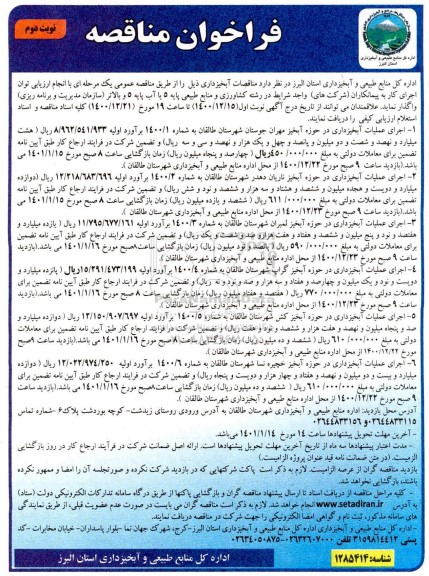 فراخوان مناقصه
نوبت دوم
اداره کل منابع طبیعی و آبخیزداری
استان البرز
اداره کل منابع طبیعی و آبخیزداری استان البرز در نظر دارد مناقصات آبخیزداری ذیل را از طریق مناقصه عمومی یک مرحله ای با انجام ارزیابی توان
اجرای کار به پیمانکاران (شرکت های) واجد شرایط در رشته کشاورزی و منابع طبیعی پایه ۵ یا آب پایه ۵ و بالاتر (سازمان مدیریت و برنامه ریزی)
واگذار نماید. علاقمندان می توانند از تاریخ درج آگهی نوبت اول (۱۴۰۰/۱۲/۱۵) تا ساعت ۱۹ مورخ (۱۴۰۰/۱۲/۲۱) کلیه اسناد مناقصه و اسناد
استعلام ارزیابی کیفی را دریافت نمایند.
۱- اجرای عملیات آبخیزداری در حوزه آبخیز مهران جوستان شهرستان طالقان به شماره ۱۴۰۰/۱ برآورد اولیه ۸/۹۶۲/۵۴۱/۹۳۳ ریال ( هشت
میلیارد و نهصد و شصت و دو میلیون و پانصد و چهل و یک هزار و نهصد و سی و سه ریال) و تضمین شرکت در فرایند ارجاع کار طبق آیین نامه
تضمین برای معاملات دولتی به مبلغ ۴۵۰/۰۰۰/۰۰۰ ریال ( چهارصد و پنجاه میلیون ریال) زمان بازگشائی ساعت ۸ صبح مورخ ۱۴۰۱/۱/۱۵
می باشد.(بازدید ساعت ۹ صبح مورخ ۱۴۰۰/۱۲/۲۲ از محل اداره منابع طبیعی و آبخیزداری شهرستان طالقان).
۲- اجرای عملیات آبخیزداری در حوزه آبخیز ناریان دهدر شهرستان طالقان به شماره ۱۴۰۰/۲ برآورد اولیه ۱۲/۲۱۸/۶۸۳/۶۹۶ ریال (دوازده
میلیارد و دویست و هجده میلیون و ششصد و هشتاد و سه هزار و ششصد و نود و شش ریال) و تضمین شرکت در فرایند ارجاع کار طبق آیین نامه
تضمین برای معاملات دولتی به مبلغ ۶۱۱/۰۰۰/۰۰۰ ریال (ششصد و یازده میلیون ریال) زمان بازگشایی ساعت ۸ صبح مورخ ۱۴۰۱/۱/۱۵
می باشد.(بازدید ساعت ۹ صبح مورخ ۱۴۰۰/۱۲/۲۳ از محل اداره منابع طبیعی و آبخیزداری شهرستان طالقان ).
۳- اجرای عملیات آبخیزداری در حوزه آبخیز لمبران شهرستان طالقان به شماره ۱۴۰۰/۳ برآورد اولیه ۱۱/۷۹۵/۶۷۷/۱۶۱ ریال ( یازده میلیارد و
هفتصد و نود و پنج میلیون و ششصد و هفتاد و هفت هزار و صد و شصت و یک ریال) و تضمین شرکت در فرایند ارجاع کار طبق آیین نامه تضمین
برای معاملات دولتی به مبلغ ۵۹۰/۰۰۰/۰۰۰ ریال ( پانصد و نود میلیون ریال) زمان بازگشایی ساعت ۸ صبح مورخ ۱۴۰۱/۱/۱۶ می باشد.(بازدید
ساعت ۹ صبح مورخ ۱۴۰۰/۱۲/۲۳ از محل اداره منابع طبیعی و آبخیزداری شهرستان طالقان ).
۴- اجرای عملیات آبخیزداری در حوزه آبخیز گراب شهرستان طالقان به شماره ۱۴۰۰/۴ برآورد اولیه ۱۵/۲۹۱/۴۷۳/۱۹۹ ریال ( پانزده میلیارد و
دویست و نود و یک میلیون و چهارصد و هفتاد و سه هزار و صد و نود و نه ریال) و تضمین شرکت در فرایند ارجاع کار طبق آیین نامه تضمین برای
معاملات دولتی به مبلغ ۷۷۰/۰۰۰/۰۰۰ ریال ( هفتصد و هفتاد میلیون ریال) زمان بازگشایی ساعت ۸ صبح مورخ ۱۴۰۱/۱/۱۶ می باشد.(بازدید
ساعت ۹ صبح مورخ ۱۴۰۰/۱۲/۲۳ از محل اداره منابع طبیعی و آبخیزداری شهرستان طالقان ).
۵- اجرای عملیات آبخیزداری در حوزه آبخیز کش شهرستان طالقان به شماره ۱۴۰۰/۵ برآورد اولیه ۱۲/۱۵۰/۹۰۷/۶۹۷ ریال ( دوازده میلیارد و
صد و پنجاه میلیون و نهصد و هفت هزار و ششصد و نود و هفت ریال) و تضمین شرکت در فرایند ارجاع کار طبق آیین نامه تضمین برای معاملات
دولتی به مبلغ ۶۱۰/۰۰۰/۰۰۰ ریال ( ششصد و ده میلیون ریال) زمان بازگشایی ساعت ۸ صبح مورخ ۱۴۰۱/۱/۱۶ می باشد.(بازدید ساعت ۹ صبح
مورخ ۱۴۰۰/۱۲/۲۲ از محل اداره منابع طبیعی و آبخیزداری شهرستان طالقان ).
۶- اجرای عملیات آبخیزداری در حوزه آبخیز خچیره نسا شهرستان طالقان به شماره ۱۴۰۰/۶ برآورد اولیه ۱۲/۰۲۲/۹۷۴/۲۵۰ ریال (دوازده
میلیارد و بیست و دو میلیون و نهصد و هفتاد و چهار هزار و دویست و پنجاه ریال) و تضمین شرکت در فرایند ارجاع کار طبق آیین نامه تضمین برای
معاملات دولتی به مبلغ ۶۱۰/۰۰۰/۰۰۰ ریال ( ششصد و ده میلیون ریال) زمان بازگشایی ساعت ۸ صبح مورخ ۱۴۰۱/۱/۱۶ می باشد.(بازدید ساعت
۹ صبح مورخ ۱۴۰۰/۱۲/۲۲ از محل اداره منابع طبیعی و آبخیزداری شهرستان طالقان ).
آدرس محل بازدید: اداره منابع طبیعی و آبخیزداری شهرستان طالقان به آدرس ورودی روستای زیدشت- کوچه بوردشت پلاک ۶ -شماره تماس
۰۲۶۴۴۸۳۳۱۱۵ و ۰۲۶۴۴۸۳۳۱۵۶
- آخرین مهلت تحویل پیشنهادها ساعت ۱۴ مورخ ۱۴۰۱/۱/۱۴ می باشد.
- مدت اعتبار پیشنهادها سه ماه از تاریخ آخرین مهلت تحویل پیشنهادها است. ارائه اصل ضمانت شرکت در فرآیند ارجاع کار در روز بازگشایی
الزامیست. (در متن ضمانت نامه قید عنوان پروژه الزامیست.)
بازدید مناقصه گران از عرصه الزامیست. لازم به ذکر است پاکت شرکتهایی که در بازدید شرکت نکرده و صورتجلسه آن را امضا و ممهور نکرده
باشند، بازگشایی نخواهد شد.
- کلیه مراحل مناقصه از دریافت اسناد تا ارسال پیشنهاد مناقصه گران و بازگشایی پاکتها از طریق درگاه سامانه تدارکات الکترونیکی دولت (ستاد) به
آدرس www.setadiran.ir انجام خواهد شد و لازم به ذکر است مناقصه گران می بایست در صورت عدم عضویت قبلی، از طریق نمایندگی
های سامانه مذکور، ثبت نام و گواهی امضا الکترونیکی را جهت شرکت در مناقصه دریافت نمایند.
- اداره کل منابع طبیعی و آبخیزداری استان البرز-کرج، شهرک جهان نما -بلوار پاسداران- خیابان مخابرات -کد
پستی ۳۱۵۹۸۱۴۴۱۳ تلفن ۷۰۰۰-۰۲۶۳۲۶ و ۰۲۶۳۴۰۵۰۸۷۵
اداره کل منابع طبیعی و آبخیزداری استان البرز
شناسه: ۱۲۸۵۴۱۴